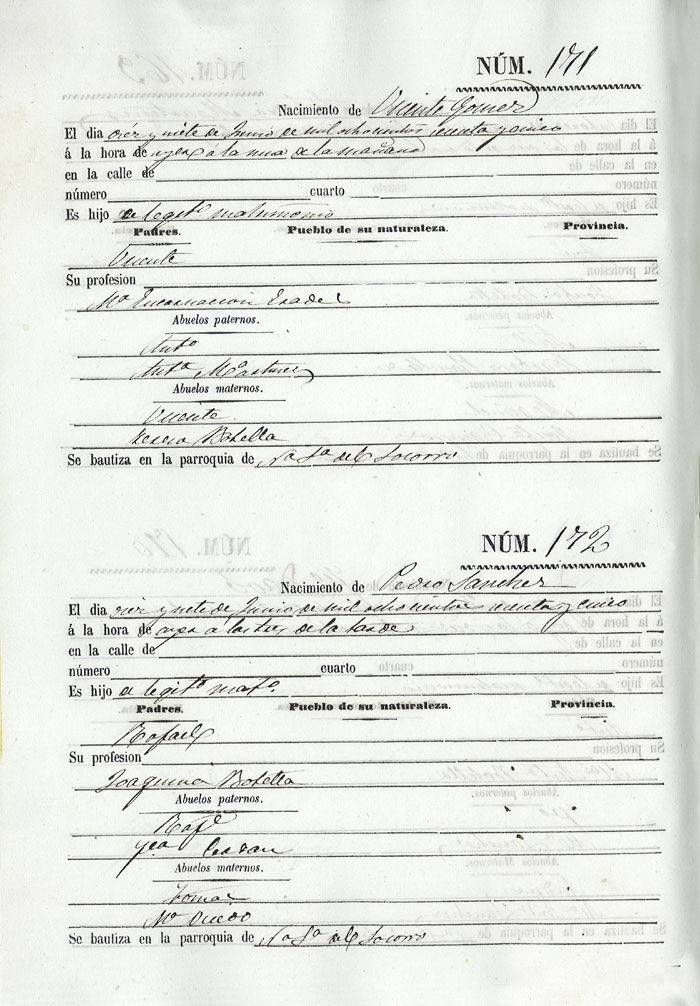 NÚM. 171
Nacimiento de Vicente Gomez
El dia diez y siete de Junio de mil ochocientos y cinco
á la hora de ayer á la una de la mañana
en la calle de
número cuarto
Es hijo de legit.º matrimonio
Padres. Pueblo de su naturaleza. Provincia.
Vicente
Su profesion
Mª Encarnacion
Abuelos paternos.
Antº
Antª Martinez
Abuelos maternos.
Vicente
Teresa Botella
Se bautiza en la parroquia de Nª Sª del Socorro
NÚM. 172
Nacimiento de Pedro Sanchez
El dia diez y siete de Junio de mil ochocientos y cinco
á la hora de ayer a las tres de la tarde
en la calle de
número cuarto
Es hijo de legitº matº.
Padres. Pueblo de su naturaleza. Provincia.
Rafael
Su profesion
Joaquina Botella
Abuelos paternos.
Rafl
Abuelos maternos.
Tomas
Mª
Se bautiza en la parroquia de Nª Sª del Socorro